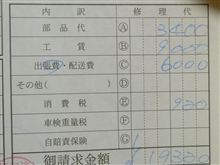 内訳 修理代
部品代 Ⓐ 3400
工賃 Ⓑ 9000
出張費・配送費 Ⓒ 6000
その他( ) Ⓓ
消費税 Ⓔ 920
車検重量税 Ⓕ
自賠責保険 Ⓖ
御請求金額 19320